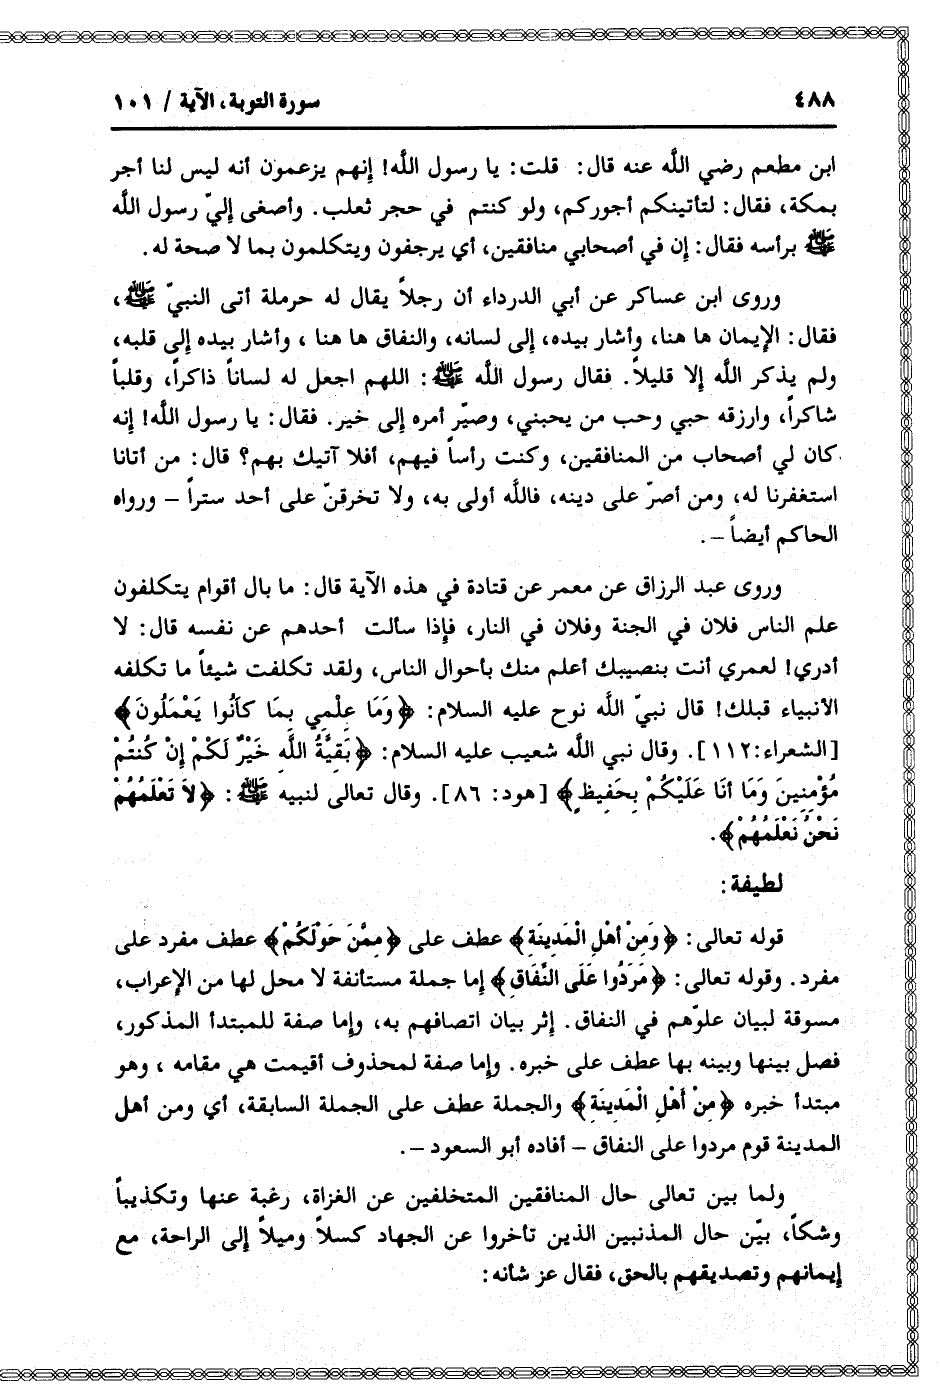 ٤٨٨ سورة التوبة، الآية / ١٠١
ابن مطعم رضي الله عنه قال: قلت: يا رسول الله! إنهم يزعمون أنه ليس لنا أجر
بمكة، فقال: لتأتينكم أجوركم، ولو كنتم في حجر ثعلب. وأصغى إليّ رسول الله
ﷺ برأسه فقال: إن في أصحابي منافقين، أي يرجفون ويتكلمون بما لا صحة له.
وروى ابن عساكر عن أبي الدرداء أن رجلاً يقال له حرملة أتى النبيّ ﷺ،
فقال: الإيمان ها هنا، وأشار بيده، إلى لسانه، والنفاق ها هنا ، وأشار بيده إلى قلبه،
ولم يذكر الله إلا قليلاً. فقال رسول الله ﷺ: اللهم اجعل له لساناً ذاكراً، وقلباً
شاكراً، وارزقه حبي وحب من يحبني، وصيّر أمره إلى خير. فقال: يا رسول الله! إنه
كان لي أصحاب من المنافقين، وكنت رأساً فيهم، أفلا آتيك بهم؟ قال: من أتانا
استغفرنا له، ومن أصرّ على دينه، فالله أولى به، ولا تخرقنّ على أحد ستراً – ورواه
الحاكم أيضاً –.
وروى عبد الرزاق عن معمر عن قتادة في هذه الآية قال: ما بال أقوام يتكلفون
علم الناس فلان في الجنة وفلان في النار، فإذا سألت أحدهم عن نفسه قال: لا
أدري! لعمري أنت بنصيبك أعلم منك بأحوال الناس، ولقد تكلفت شيئاً ما تكلفه
الأنبياء قبلك! قال نبيّ الله نوح عليه السلام: ﴿وَمَا عِلْمِي بِمَا كَانُوا يَعْمَلُونَ﴾
[الشعراء:١١٢]. وقال نبي الله شعيب عليه السلام: ﴿بَقِيَّةُ اللَّهِ خَيْرٌ لَكُمْ إِنْ كُنتُمْ
مُؤْمِنِينَ وَمَا أَنَا عَلَيْكُمْ بِحَفِيظٍ﴾ [هود: ٨٦]. وقال تعالى لنبيه ﷺ: ﴿لاَ تَعْلَمُهُمْ
نَحْنُ نَعْلَمُهُمْ﴾.
لطيفة:
قوله تعالى: ﴿وَمِنْ أَهْلِ الْمَدِينَةِ﴾ عطف على ﴿مِمَّنَ حَوْلَكُمْ﴾ عطف مفرد على
مفرد. وقوله تعالى: ﴿مَرَدُوا عَلَى النِّفَاقِ﴾ إما جملة مستأنفة لا محل لها من الإعراب،
مسوقة لبيان علوّهم في النفاق. إثر بيان اتصافهم به، وإما صفة للمبتدأ المذكور،
فصل بينها وبينه بها عطف على خبره. وإما صفة لمحذوف أقيمت هي مقامه ، وهو
مبتدأ خبره ﴿مِنْ أَهْلِ الْمَدِينَةِ﴾ والجملة عطف على الجملة السابقة، أي ومن أهل
المدينة قوم مردوا على النفاق – أفاده أبو السعود –.
ولما بين تعالى حال المنافقين المتخلفين عن الغزاة، رغبة عنها وتكذيباً
وشكاً، بيّن حال المذنبين الذين تأخروا عن الجهاد كسلاً وميلاً إلى الراحة، مع
إيمانهم وتصديقهم بالحق، فقال عز شأنه: